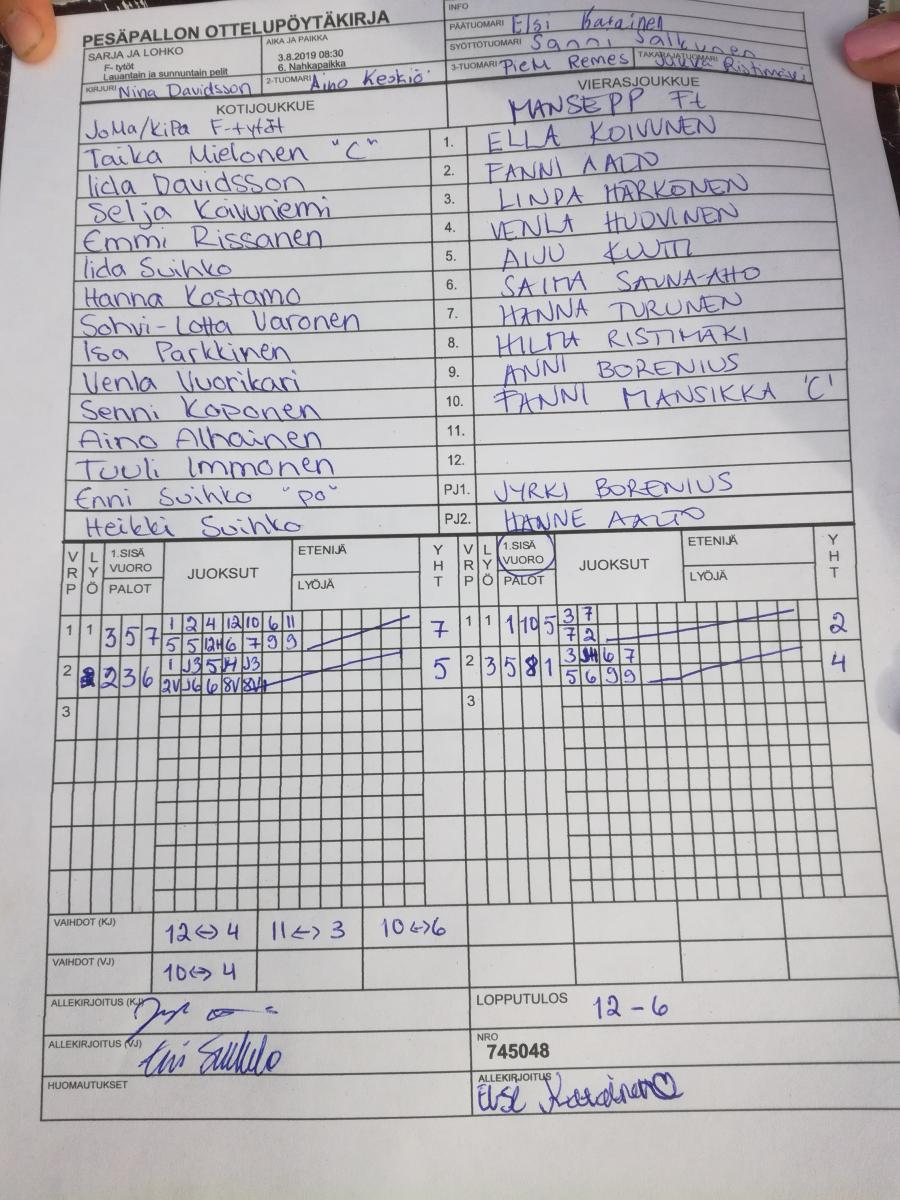 PESÄPALLON OTTELUPÖYTÄKIRJA
INFO
SARJA JA LOHKO
F- tytöt
Lauantain ja sunnuntain pelit
AIKA JA PAIKKA
3.8.2019 08:30
6. Nahkapaikka
PÄÄTUOMARI Elsi
SYÖTTÖTUOMARI Sanni
KIRJURI Nina Davidsson
2-TUOMARI Aino Keskiö
3-TUOMARI Remes
TAKARAJATUOMARI Ristimäki
KOTIJOUKKUE
VIERASJOUKKUE
JoMa/KiPa F-tytöt
MANSE PP Ft
Taika Mielonen "C"
1. ELLA KOIVUNEN
Iida Davidsson
2. FANNI AALTO
Selja Koivuniemi
3. LINDA HARKONEN
Emmi Rissanen
4. VENLA HUOVINEN
Iida Suihko
5. AIJU KUUTTI
Hanna Kostamo
6. SAIMA SAUNA-AHO
Sohvi-Lotta Varonen
7. HANNA TURUNEN
Isa Parkkinen
8. HILMA RISTIMÄKI
Venla Vuorikari
9. ANNI BORENIUS
Senni Koponen
10. FANNI MANSIKKA 'C'
Aino Alhainen
11.
Tuuli Immonen
12.
Enni Suihko "PO"
PJ1. JYRKI BORENIUS
Heikki Suihko
PJ2. HANNE AALTO
VRP LYÖ 1.SISÄ VUORO PALOT JUOKSUT ETENIJÄ LYÖJÄ YHT
VRP LYÖ 1.SISÄ VUORO PALOT JUOKSUT ETENIJÄ LYÖJÄ YHT
1 1 3 5 7 1 2 4 12 10 6 11 7
5 5 6 7 9 9
1 1 1 10 5 3 7 2
7 2
2 2 3 6 1 J3 5 J4 J3 5
2V J6 6 8V
2 3 5 8 1 3 6 7 4
5 6 9 9
3
3
VAIHDOT (KJ) 12<->4 11<->3 10<->6
VAIHDOT (VJ) 10<->4
ALLEKIRJOITUS (KJ)
LOPPUTULOS 12-6
ALLEKIRJOITUS (VJ)
NRO
745048
HUOMAUTUKSET
ALLEKIRJOITUS